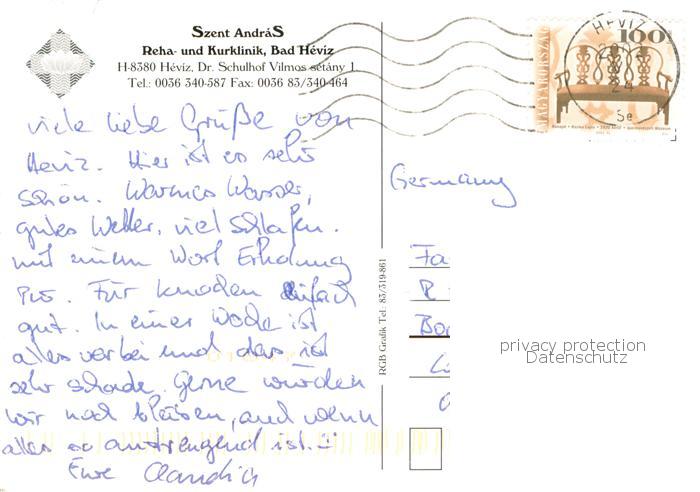 Szent AndráS
Reha- und Kurklinik, Bad Hévíz
H-8380 Hévíz, Dr. Schulhof Vilmos sétány 1
Tel.: 0036 340-587 Fax: 0036 83/340-464
HÉVÍZ
100
MAGYARORSZÁG
24
5e
viele liebe Grüße von
Heviz. Hier ist es sehr
schön. Warmes Wasser,
gutes Wetter, viel schlafen.
mit einem Wort Erholung
pur. Für Knochen einfach
gut. In einer Woche ist
alles vorbei und das ist
sehr schade. Gerne würden
wir noch bleiben, auch wenn
alles so anstrengend ist.
Eure Claudia
Germany
RGB Grafik Tel.: 83/319-861
Fa
Bo
privacy protection
Datenschutz